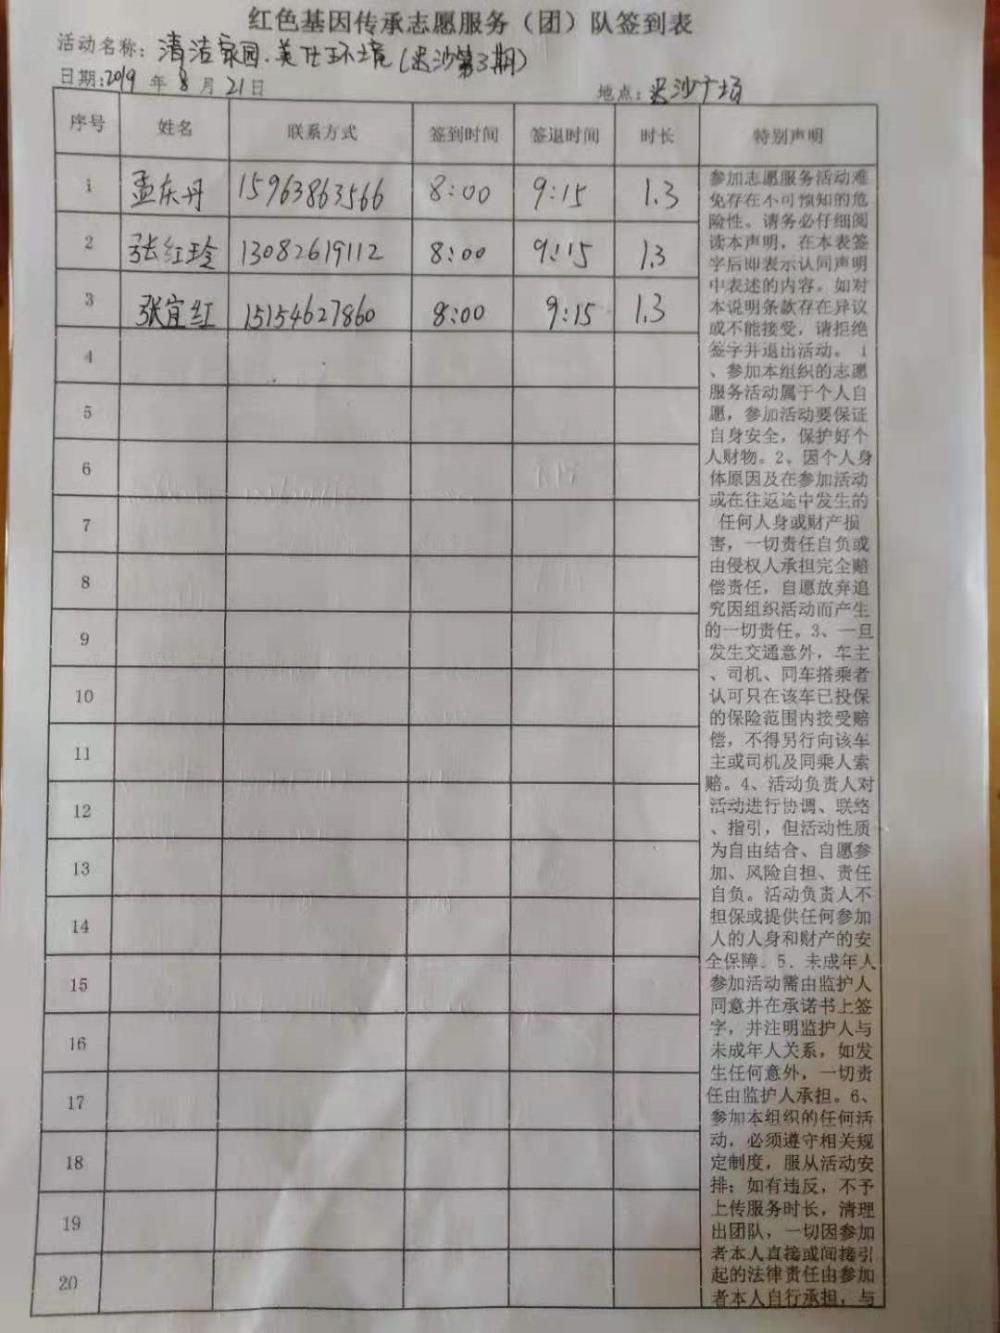 红色基因传承志愿服务（团）队签到表
活动名称：清洁家园.美化环境(米沙第3期)
日期:2019年8月21日 地点:米沙广场
序号 姓名 联系方式 签到时间 签退时间 时长 特别声明
1 孟庆丹 15963863566 8:00 9:15 1.3
2 张红玲 13082619112 8:00 9:15 1.3
3 张宜红 15154627860 8:00 9:15 1.3
4
5
6
7
8
9
10
11
12
13
14
15
16
17
18
19
20
参加志愿服务活动难
免存在不可预知的危
险性。请务必仔细阅
读本声明，在本表签
字后即表示认同声明
中表述的内容。如对
本说明条款存在异议
或不能接受，请拒绝
签字并退出活动。 1
、参加本组织的志愿
服务活动属于个人自
愿，参加活动要保证
自身安全，保护好个
人财物。2、因个人身
体原因及在参加活动
或在往返途中发生的
任何人身或财产损
害，一切责任自负或
由侵权人承担完全赔
偿责任，自愿放弃追
究因组织活动而产生
的一切责任。3、一旦
发生交通意外，车主
、司机、同车搭乘者
认可只在该车已投保
的保险范围内接受赔
偿，不得另行向该车
主或司机及同乘人索
赔。4、活动负责人对
活动进行协调、联络
、指引，但活动性质
为自由结合、自愿参
加、风险自担、责任
自负。活动负责人不
担保或提供任何参加
人的人身和财产的安
全保障。5．未成年人
参加活动需由监护人
同意并在承诺书上签
字，并注明监护人与
未成年人关系，如发
生任何意外，一切责
任由监护人承担。6、
参加本组织的任何活
动，必须遵守相关规
定制度，服从活动安
排；如有违反，不予
上传服务时长，清理
出团队，一切因参加
者本人直接或间接引
起的法律责任由参加
者本人自行承担，与